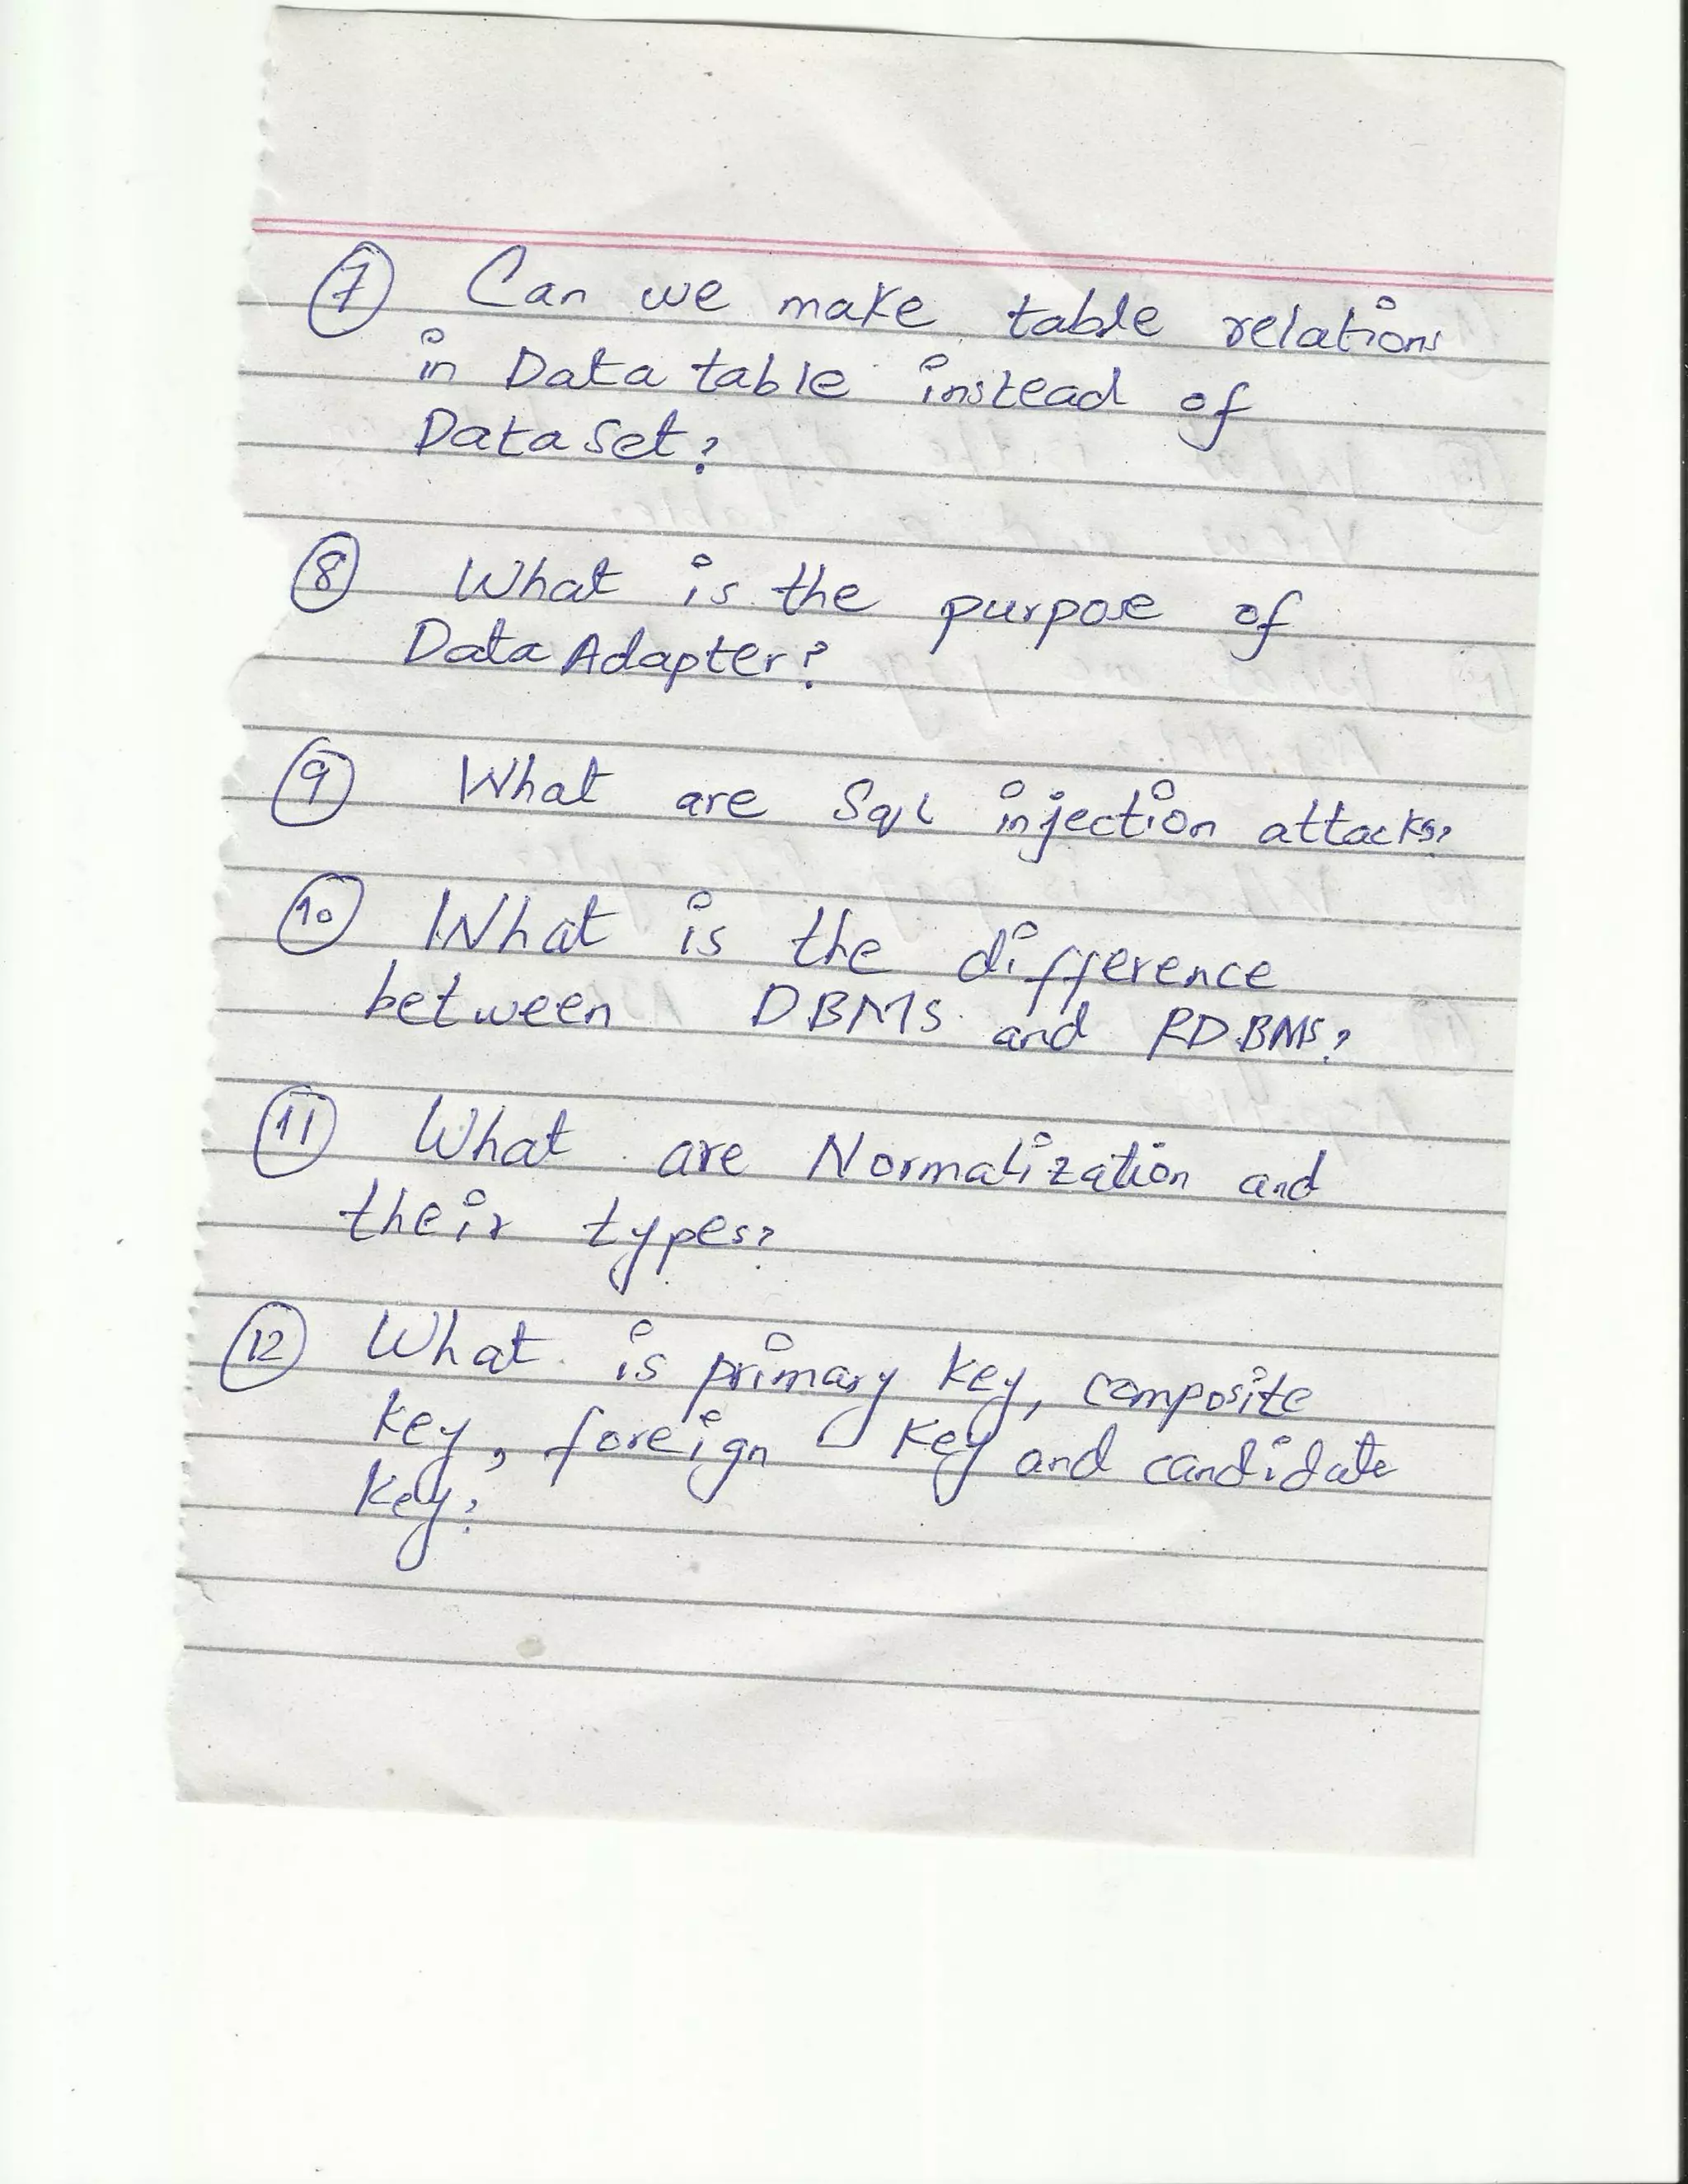 7 Can we make table relations
in Data table instead of
Data Set?
8 What is the purpose of
Data Adapter?
9 What are Sql injection attacks?
10 What is the difference
between DBMS and RDBMS?
11 What are Normalization and
their types?
12 What is primary key, composite
key, foreign key and candidate
key?